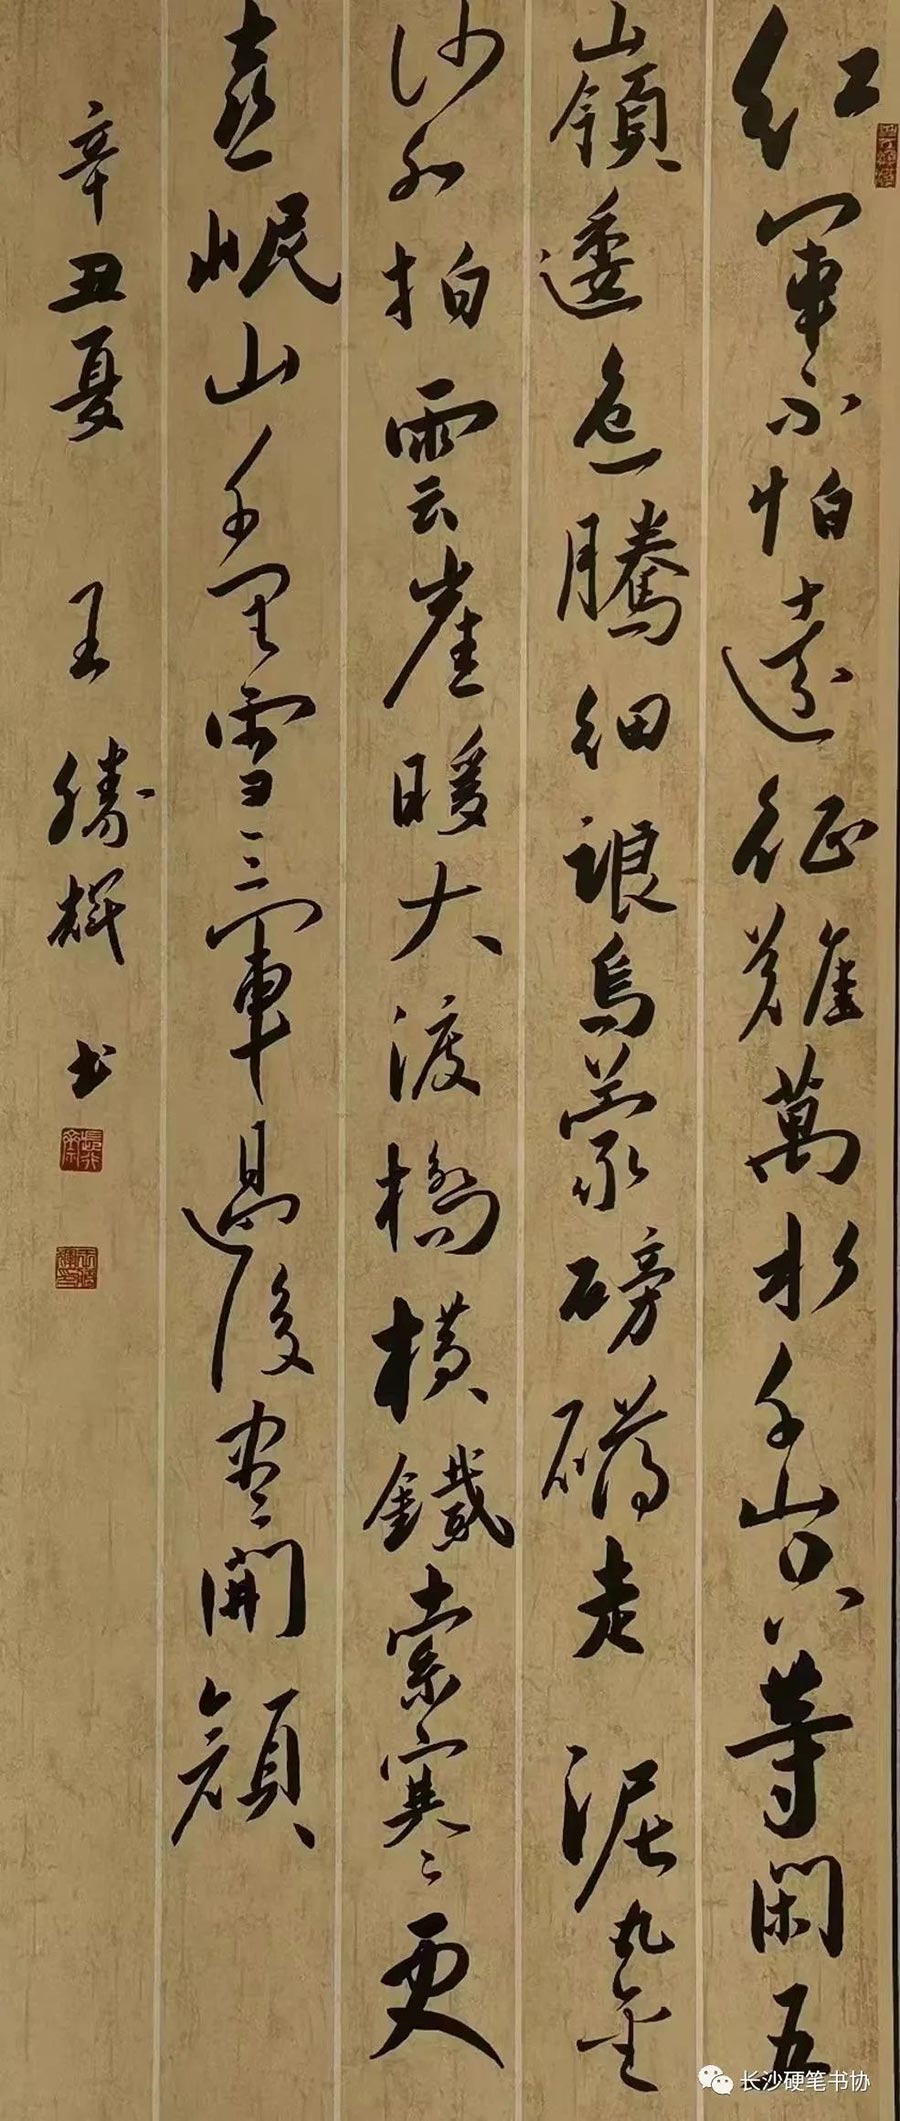 紅軍不怕遠征難萬水千山只等閑五
嶺逶迤騰細浪烏蒙磅礴走泥丸金
沙水拍雲崖暖大渡橋橫鐵索寒更
喜岷山千里雪三軍過後盡開顏
辛丑夏 王勝輝書
长沙硬笔书协